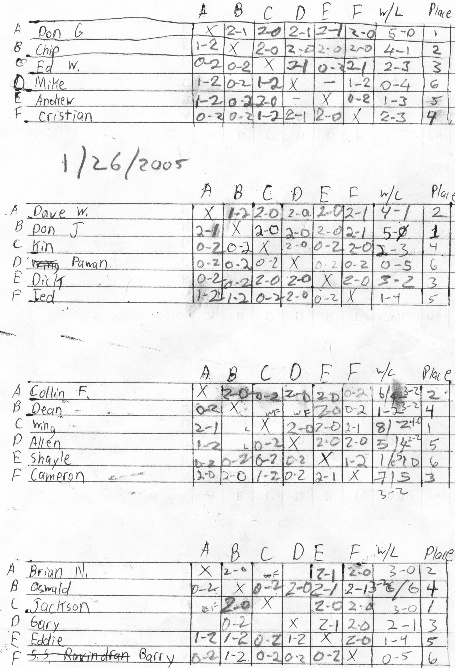 A B C D E F W/L Place
A Don G X 2-1 2-0 2-1 2-1 2-0 5-0 1
B Chip 1-2 X 2-0 2-0 2-0 2-0 4-1 2
C Ed W. 0-2 0-2 X 2-1 0-2 2-1 2-3 3
D Mike 1-2 0-2 1-2 X — 1-2 0-4 6
E Andrew 1-2 0-2 2-0 — X 0-2 1-3 5
F Cristian 0-2 0-2 1-2 2-1 2-0 X 2-3 4
1/26/2005
A B C D E F W/L Place
A Dave W. X 1-2 2-0 2-0 2-0 2-1 4-1 2
B Don J 2-1 X 2-0 2-0 2-0 2-1 5-0 1
C Kin 0-2 0-2 X 2-0 0-2 2-0 2-3 4
D Pawan 0-2 0-2 0-2 X 0-2 0-2 0-5 6
E Dick 0-2 0-2 2-0 2-0 X 2-0 3-2 3
F Ted 1-2 1-2 0-2 2-0 0-2 X 1-4 5
A B C D E F W/L Place
A Collin F. X 2-0 0-2 2-0 2-0 0-2 2
B Dean 0-2 X WF WF 2-0 0-2 4
C Ming 2-1 X 2-0 2-0 2-1 1
D Allen 1-2 0-2 X 2-0 2-0 5
E Shayle 0-2 0-2 0-2 0-2 X 1-2 6
F Cameron 2-0 2-0 1-2 0-2 2-1 X 7/5 3
3-2
A B C D E F W/L Place
A Brian N. X 2-0 WF 2-1 2-0 3-0 2
B Oswald 0-2 X 0-2 2-0 2-1 2-1 4
C Jackson WF 2-0 X 2-0 2-0 3-0 1
D Gary 0-2 X 2-1 2-0 2-1 3
E Eddie 1-2 1-2 0-2 1-2 X 2-0 1-4 5
F Barry 0-2 1-2 0-2 0-2 0-2 X 0-5 6